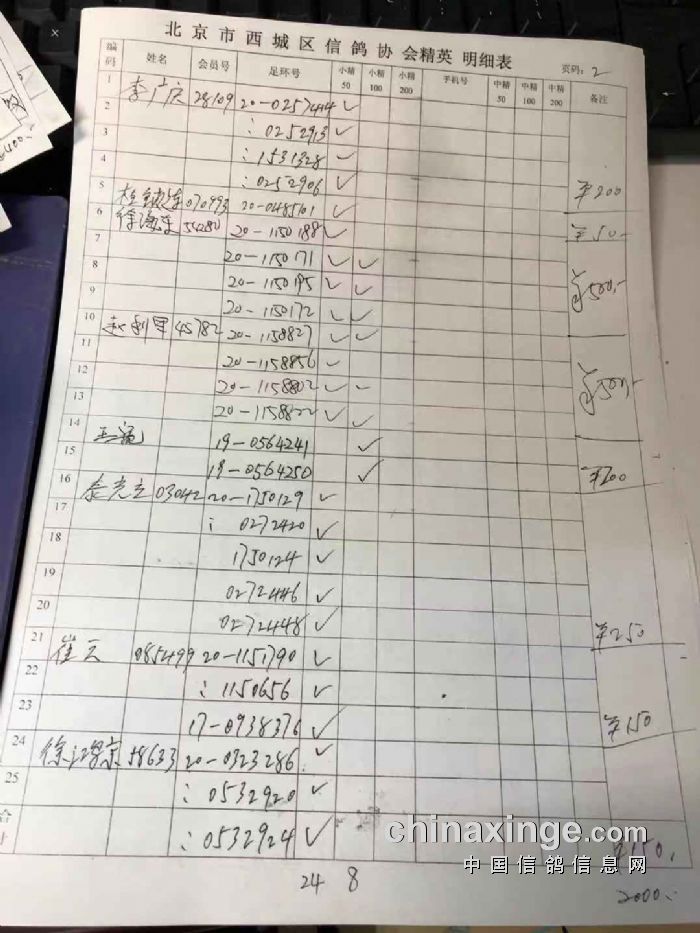 北京市西城区信鸽协会精英 明细表
页码: 2
编码 姓名 会员号 足环号 小精50 小精100 小精200 手机号 中精50 中精100 中精200 备注
1 李广庆 28109 20-0257414 ✓
2 : 0252913 ✓
3 : 1531328 ✓
4 : 0252906 ✓ ¥200
5 070993 20-0485101 ✓ ¥50-
6 徐海东 54280 20-1150188 ✓
7 20-1150171 ✓ ✓
8 20-1150195 ✓ ✓
9 20-1150172 ✓ ✓ ¥500.-
10 赵利军 45782 20-1158827 ✓ ✓
11 20-1158856 ✓
12 20-1158802 ✓ ✓
13 20-1158822 ✓ ✓ ¥500-
14 19-0564241 ✓
15 19-0564250 ✓ ¥200
16 秦光立 03042 20-1750129 ✓
17 : 0272420 ✓
18 1750124 ✓
19 0272446 ✓
20 0272448 ✓ ¥250
21 崔云 085499 20-1151790 ✓
22 : 1150656 ✓
23 17-0938376 ✓ ¥150
24 58633 20-0323286 ✓
25 : 0532920 ✓
: 0532924 ✓ ¥150.
24 8
2000.-
chinaxinge.com
中国信鸽信息网